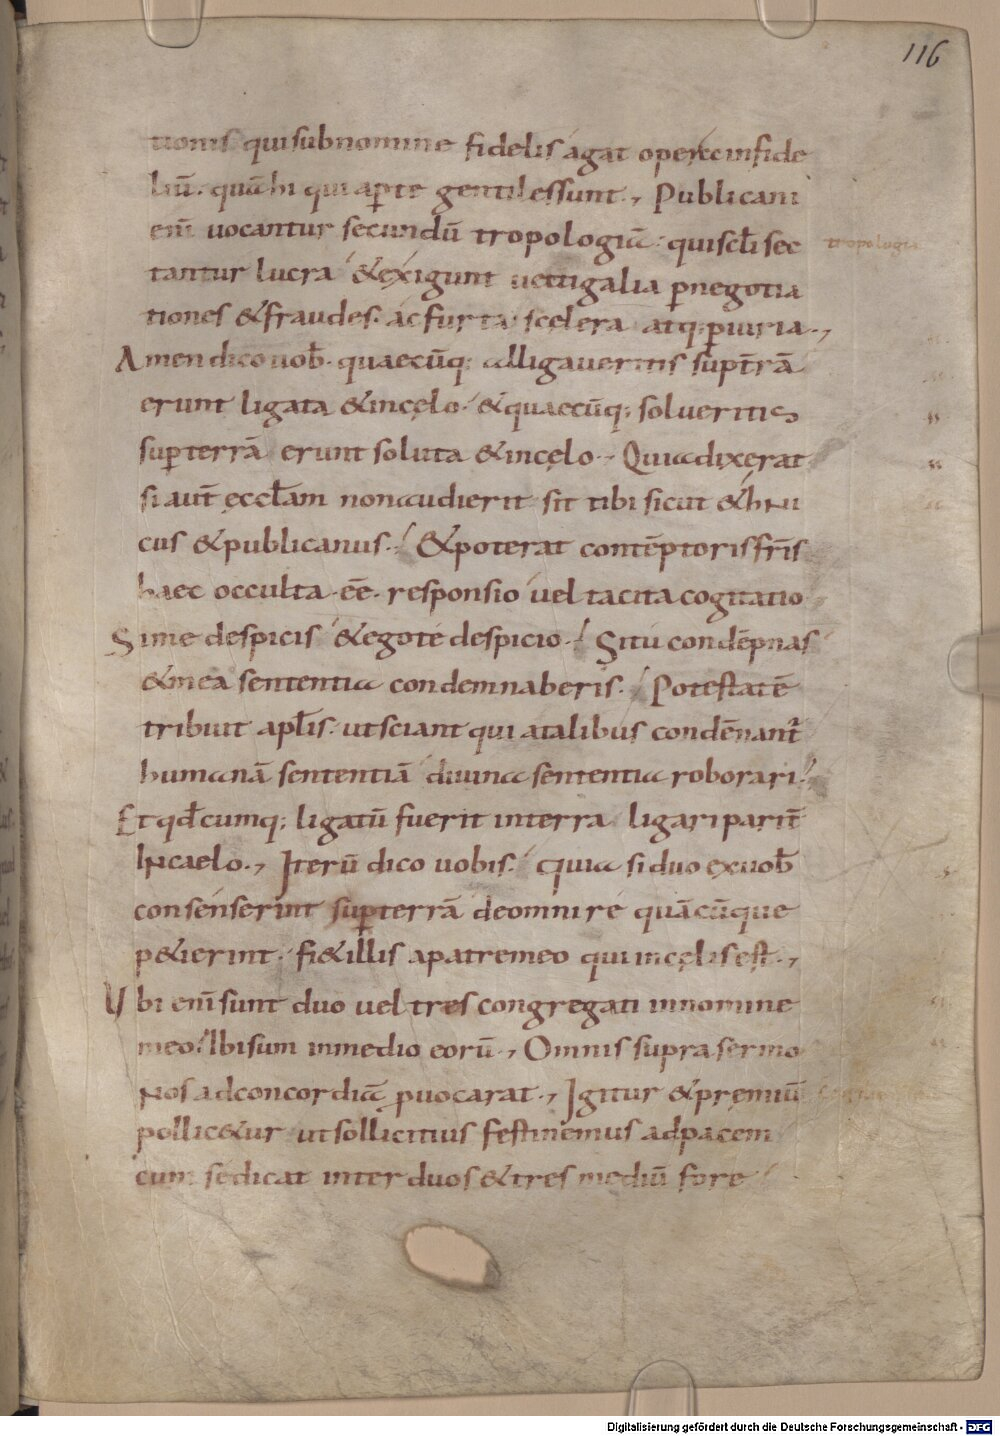 116
tionis qui sub nomine fidelis agat opera infide
liū. quā hi qui aꝑte gentiles sunt., Publicani
enī uocantur secundū tropologiā. qui scłi sec
tropologia
tantur lucra & exigunt uectigalia ꝑ negotia
tiones & fraudes. ac furta scelera atq; ꝑiuria.,
Amen dico uob̄. quaecūq; alligaueritis suꝑ t̄rā
erunt ligata & in cęlo. & quaecūq; solueritis
suꝑ terrā erunt soluta & in cęlo., Quia dixerat
si aut̄ eccłam non audierit sit tibi sicut &hni
cus & publicanus. & poterat contēptoris fr̄is
haec occulta. eē. responsio uel tacita cogitatio
Si me despicis & ego te despicio. Si tu condēpnas
& mea sententia condemnaberis. Potestatē
tribuit apłis. ut sciant qui a talibus condēnant̄
humanā sententiā diuina sententia roborari.
Et qđcumq; ligatū fuerit in terra ligari parit̄
in caelo., Iterū dico uobis. quia si duo ex uob̄
consenserint suꝑ terrā de omni re quācūque
p&ierint. fi& illis a patre meo qui in cęlis est.,
Ubi enī sunt duo uel tres congregati in nomine
meo. Ibi sum in medio eorū., Omnis supra sermo
nos ad concordiā ꝓuocarat., Igitur & pręmiū
pollic&ur ut sollicitius festinemus ad pacem
cum se dicat inter duos & tres mediū fore
Digitalisierung gefördert durch die Deutsche Forschungsgemeinschaft - DFG